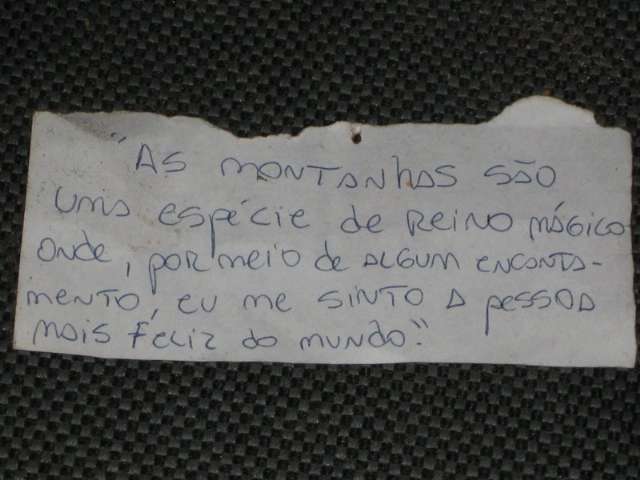 "AS MONTANHAS SÃO
UMA ESPÉCIE DE REINO MÁGICO
ONDE, POR MEIO DE ALGUM ENCANTA-
MENTO, EU ME SINTO A PESSOA
MAIS FELIZ DO MUNDO."